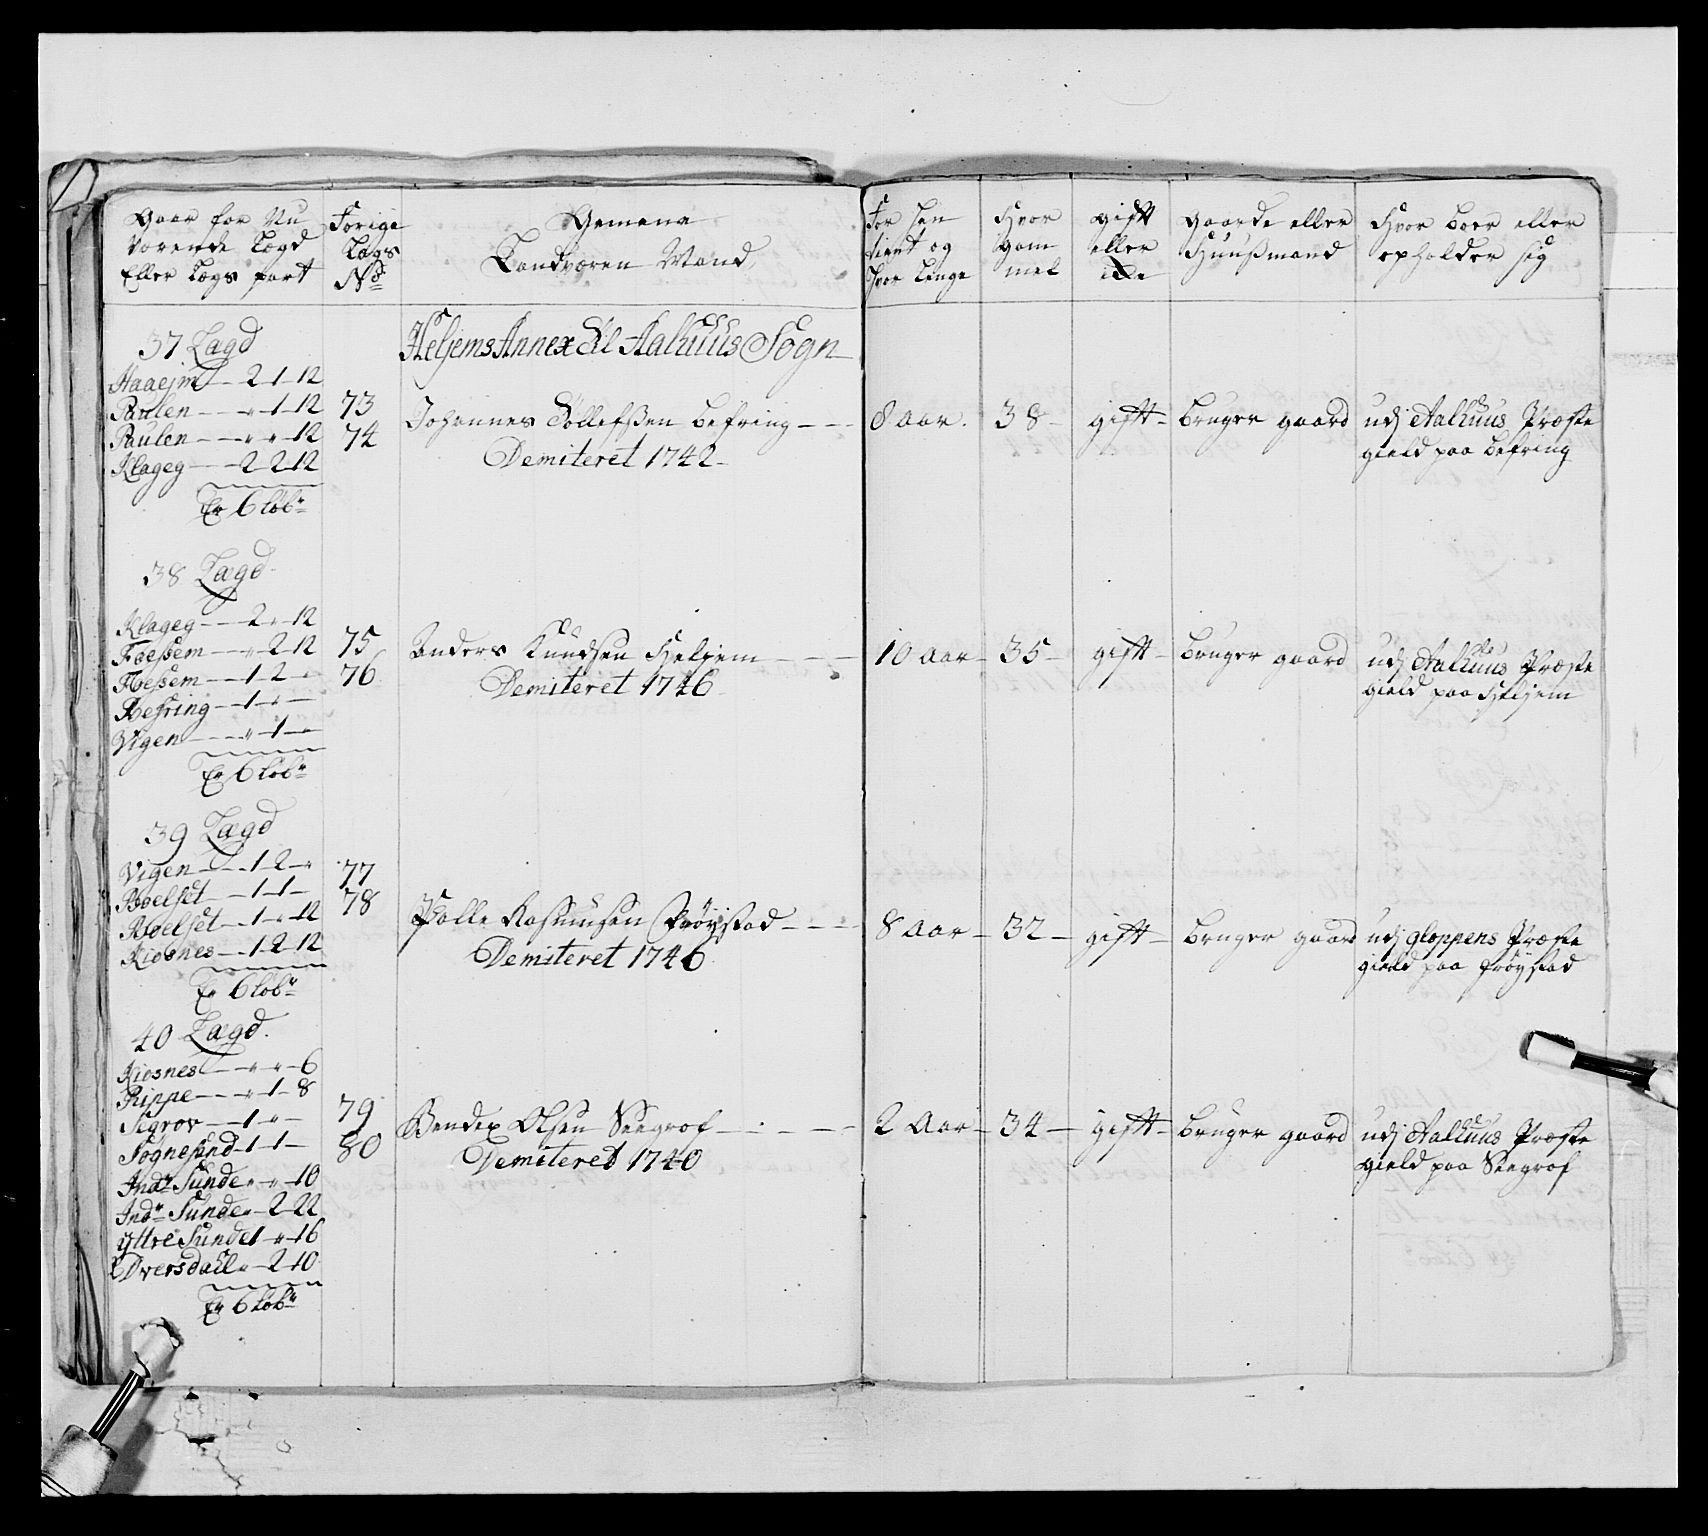 Gaar for Nu
Værende Lægd
Eller Lægs part
Forige
Lægs
No
Gemene
Landværen Mand
For hen
tient og
Hvor Lenge
Hvor
gam
mel
gift
eller
Gaarde eller
Huusmand
Hvor boer eller
opholder sig
Heljems Annex Til Aalhuus Sogn
37 Lægd
Haaejm 2 1 12
Paulen " 1 12
Paulen " " 12
Klageg 2 2 12
Er 6 løbr
73
74
Johannes Tollefsen Befring
Demiteret 1742
8 aar 38 gift bruger gaard udj Aalhuus Præste
gield paa Befring
38 Lægd
Klageg 2 " 12
Foessem " 2 12
Flessem 1 2 "
Befring 1 "
Vigen " 1 "
Er 6 løbr
75
76
Anders Knudsen Hieljem
Demiteret 1746
10 aar 35 gift bruger gaard udj Aalhuus Præste
gield paa Hieljem
39 Lægd
Vigen 1 2 "
Boelset 1 1
Roelset 1 " 12
Kiosnes 1 2 12
Er 6 løbr
77
78
Polle Rasmusen Frøystad
Demiteret 1746
8 Aar 32 gift bruger gaard udj gloppens Præste
gield paa frøystad
40 Lægd
Kiosnes " " 6
Rippe " 1 8
Segrov 1 "
Sognesand 1 1
Indr Sunde " " 10
Indr Sunde " 2 22
yttre Sunde 1 " 16
Dversdahl " 2 10
Er 6 løbr
79
80
Bendex Olsen Seegrof
Demiteret 1740
2 Aar 34 gift bruger gaard udj Aalhuus Præste
gield paa Seegrof